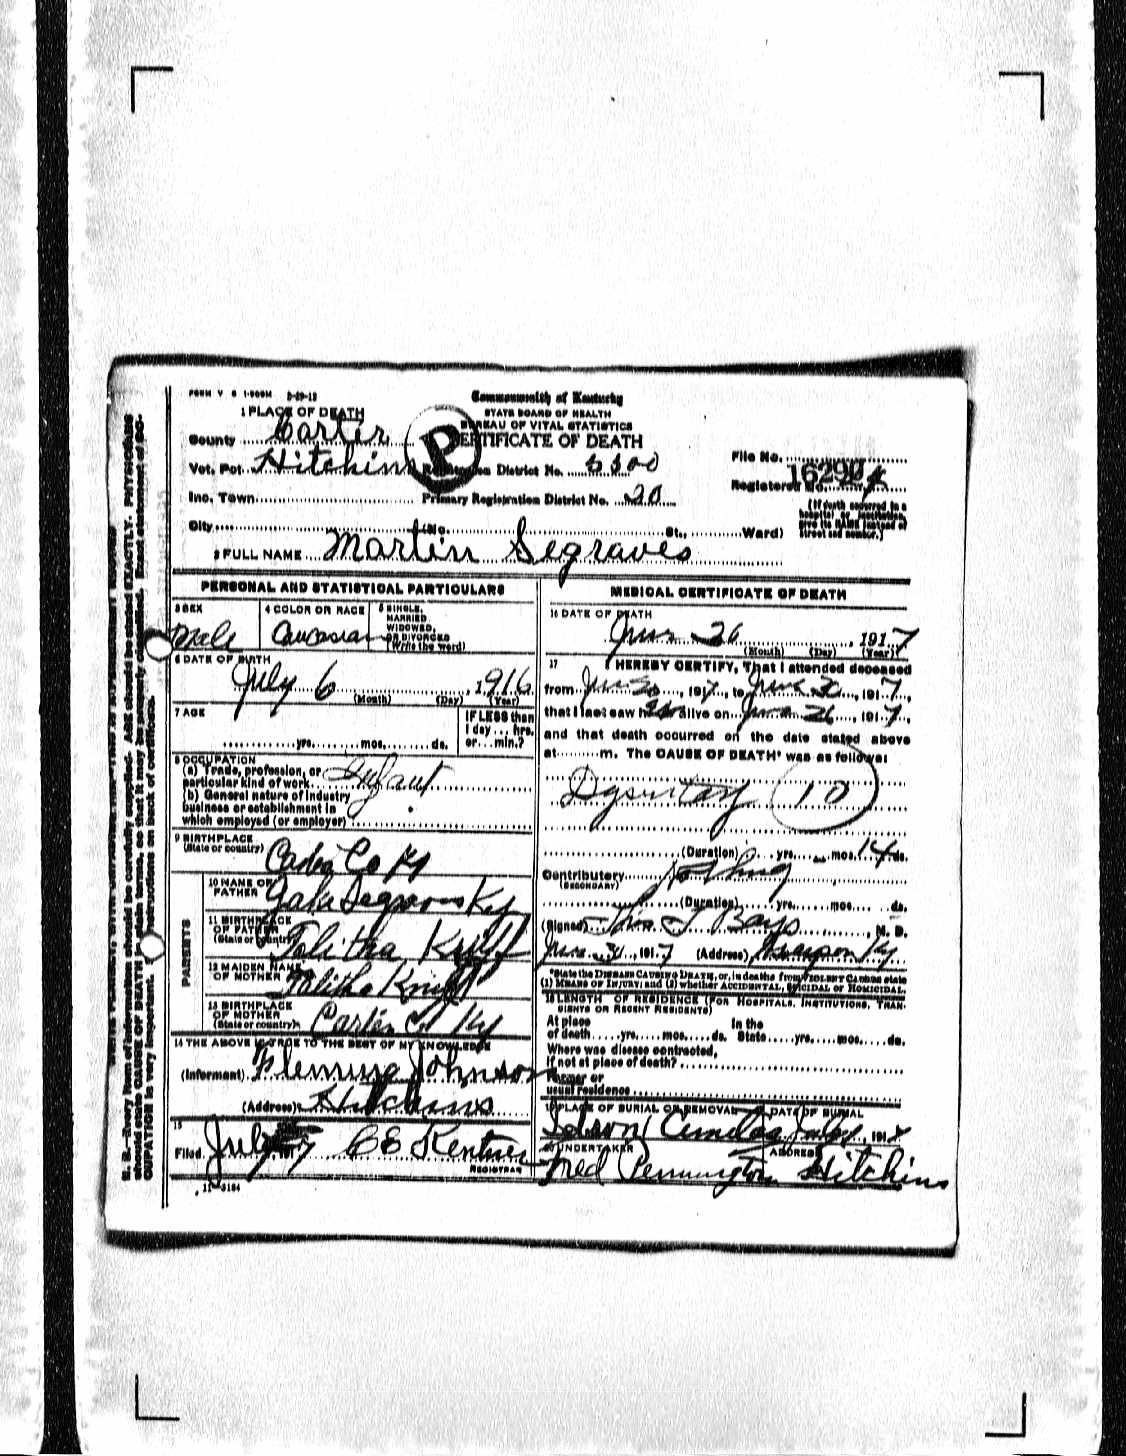 FORM V S 1-500M 2-29-12
Commonwealth of Kentucky
STATE BOARD OF HEALTH
BUREAU OF VITAL STATISTICS
CERTIFICATE OF DEATH
P
1 PLACE OF DEATH
County Carter
Vot. Pct. Hitchins Registration District No.
Inc. Town Primary Registration District No. 20
File No.
Registered No. 16290
(If death occurred in a hospital or institution, give its NAME instead of street and number.)
City (No. St., Ward)
2 FULL NAME Martin Segraves
PERSONAL AND STATISTICAL PARTICULARS
3 SEX
Male
4 COLOR OR RACE
Caucasian
5 SINGLE, MARRIED, WIDOWED, OR DIVORCED (Write the word)
6 DATE OF BIRTH
July 6, 1916
(Month) (Day) (Year)
7 AGE
yrs. mos. ds.
IF LESS than 1 day ... hrs. or ... min.?
8 OCCUPATION
(a) Trade, profession, or particular kind of work Infant
(b) General nature of industry business or establishment in which employed (or employer)
9 BIRTHPLACE
(State or country) Carter Co Ky
PARENTS
10 NAME OF FATHER
11 BIRTHPLACE OF FATHER (State or country) Talitha Kniff
12 MAIDEN NAME OF MOTHER Talitha Kniff
13 BIRTHPLACE OF MOTHER (State or country) Carter Co Ky
14 THE ABOVE IS TRUE TO THE BEST OF MY KNOWLEDGE
(Informant) Fleming Johnson
(Address) Hitchins
15
Filed July
REGISTRAR
11-3184
MEDICAL CERTIFICATE OF DEATH
16 DATE OF DEATH
June 26, 1917
(Month) (Day) (Year)
17 I HEREBY CERTIFY, That I attended deceased
from June , 1917, to June , 1917,
that I last saw h alive on June 26, 1917,
and that death occurred on the date stated above
at m. The CAUSE OF DEATH* was as follows:
Dysentary 10
(Duration) yrs. mos. 14 ds.
Contributory Nothing
(SECONDARY)
(Duration) yrs. mos. ds.
(Signed) J Bays, M. D.
June , 1917 (Address) Ky
*State the DISEASE CAUSING DEATH, or, in deaths from VIOLENT CAUSES state
(1) MEANS OF INJURY; and (2) whether ACCIDENTAL, SUICIDAL or HOMICIDAL.
18 LENGTH OF RESIDENCE (FOR HOSPITALS, INSTITUTIONS, TRANSIENTS OR RECENT RESIDENTS)
At place of death yrs. mos. ds. In the State yrs. mos. ds.
Where was disease contracted, if not at place of death?
Former or usual residence
19 PLACE OF BURIAL OR REMOVAL DATE OF BURIAL
July, 191
20 UNDERTAKER ADDRESS
Fred Pennington Hitchins